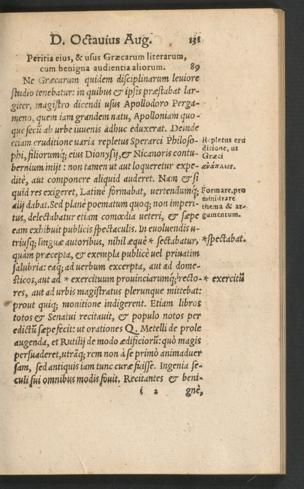 D. Octauius Aug. 131
Peritia eius, & usus Græcarum literarum,
cum benigna audientia aliorum. 89
Ne Græcarum quidem disciplinarum leuiore
studio tenebatur: in quibus & ipsis præstabat lar-
giter, magistro dicendi usus Apollodoro Perga-
meno, quem iam grandem natu, Apolloniam quo-
que secū ab urbe iuuenis adhuc eduxerat. Deinde
etiam eruditione uaria repletus Sperarci Philoso-
phi, filiorumq; eius Dionysij, & Nicanoris contu-
bernium inijt: non tamen ut aut loqueretur expe-
ditè, aut componere aliquid auderet. Nam & si
quid res exigeret, Latinè formabat, uertendumq;
alij dabat. Sed planè poematum quoq; non imperi-
tus, delectabatur etiam comœdia ueteri, & sæpe
eam exhibuit publicis spectaculis. In euoluendis u-
triusq; linguæ autoribus, nihil æquè * sectabatur,
quàm præcepta, & exempla publicè uel priuatim
salubria: eaq; ad uerbum excerpta, aut ad dome-
sticos, aut ad * exercituum prouinciarumq; recto-
res, aut ad urbis magistratus plerunque mittebat:
prout quiq; monitione indigerent. Etiam libros
totos & Senatui recitauit, & populo notos per
edictū sæpe fecit: ut orationes Q. Metelli de prole
augenda, et Rutilij de modo ædificiorū: quò magis
persuaderet, utrāq; rem non à se primò animaduer
sam, sed antiquis iam tunc curæ fuisse. Ingenia se-
culi sui omnibus modis fouit. Recitantes & beni-
i 2 gnè,
Repletus eru
ditione, ut
Græci
Formare, pro
ministrare
thema & ar-
gumentum.
* spectabat.
* exercitū